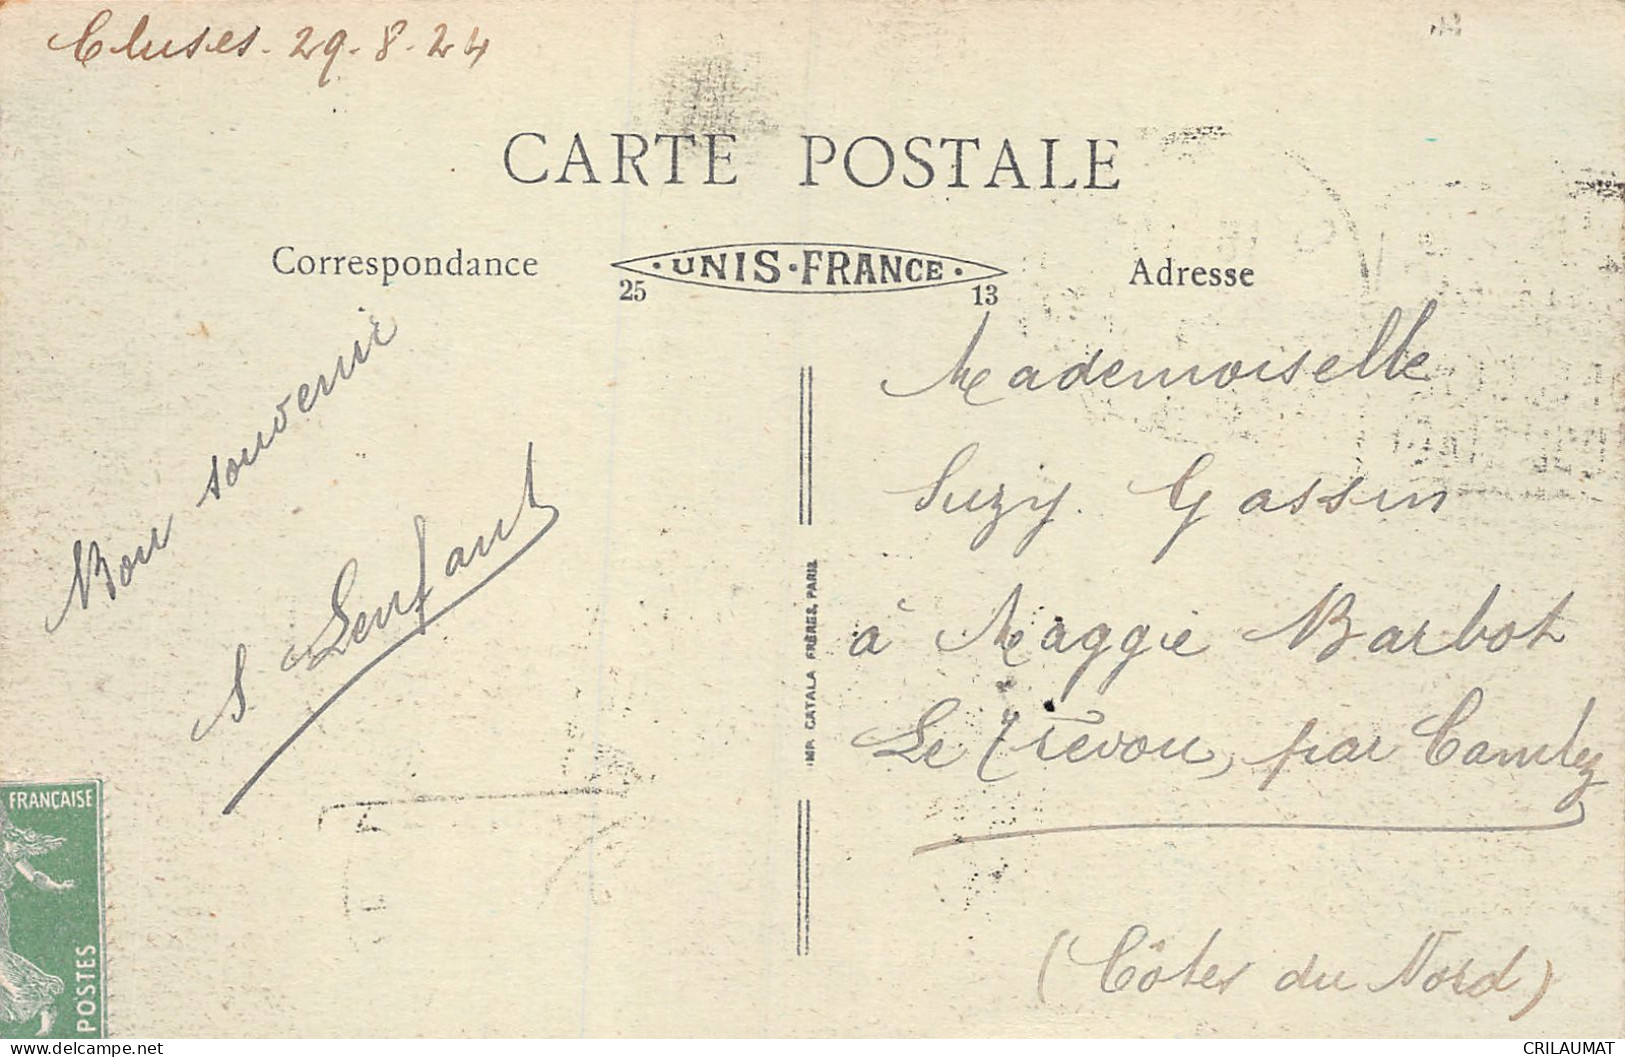 Cluses. 29-8-24
CARTE POSTALE
Correspondance
·UNIS·FRANCE·
25
13
Adresse
Bon souvenir
S. Lenfant
Mademoiselle
Suzy. Gassin
à Maggie Barbot
Le Trévou, par Camlez
(Côtes du Nord)
IMP. CATALA FRÈRES, PARIS
FRANÇAISE
POSTES
CRILAUMAT